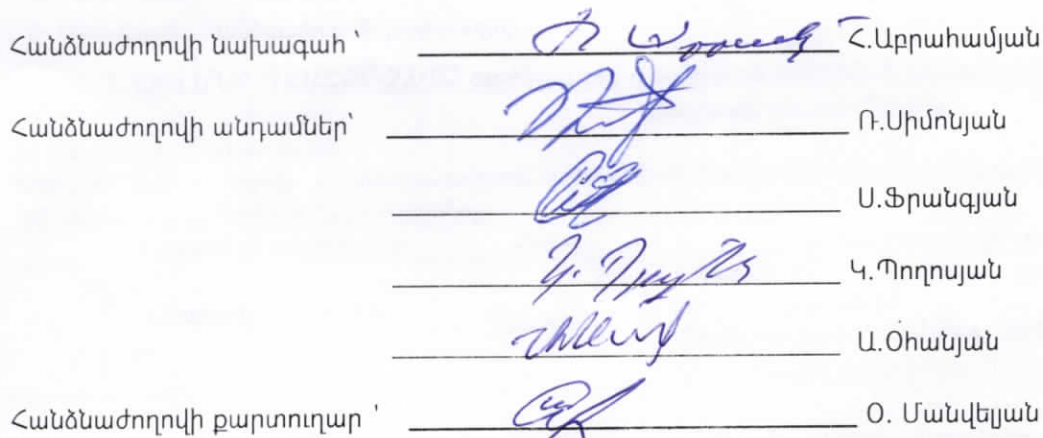 Հանձնաժողովի նախագահ ՝ Հ.Աբրահամյան
Հանձնաժողովի անդամներ՝ Ռ.Սիմոնյան
Ս.Ֆրանգյան
Կ.Պողոսյան
Ա.Օհանյան
Հանձնաժողովի քարտուղար ՝ Օ. Մանվելյան